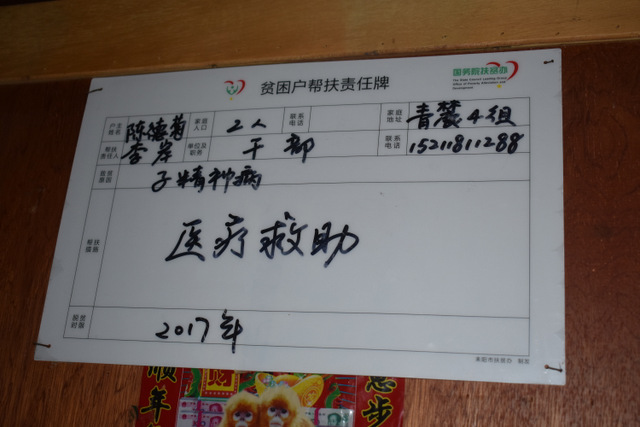 贫困户帮扶责任牌
国务院扶贫办
The State Council Leading Group
Office of Poverty Alleviation and
Development
户主姓名 陈德菊 家庭人口 2人 联系电话 家庭地址 青麓4组
帮扶责任人 李岸 单位及职务 干部 联系电话 15211811288
致贫原因 子精神病
帮扶措施 医疗救助
脱贫时限 2017年
耒阳市扶贫办 制发
顺年
意步